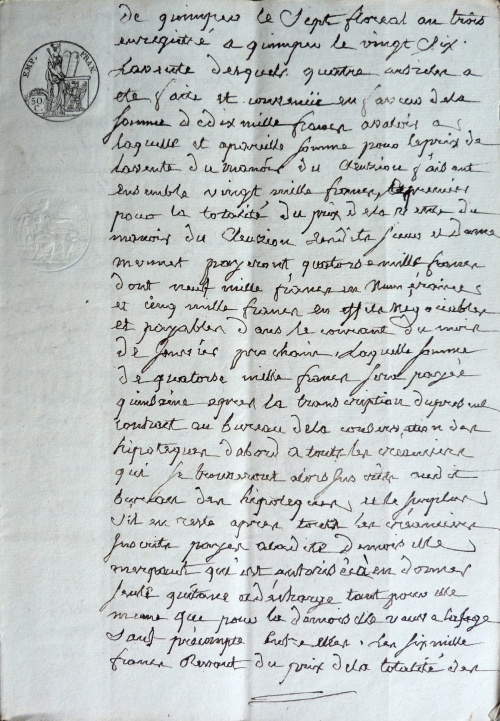 EMP. FRAN.
50
C.
de quimper le sept floreal an trois
enregistré a quimper le vingt six
la vente desquels quatre articles a
été faite et consentie en faveur de la
somme de dix mille francs avalois a
laquelle et apareille somme pour le prix de
la vente du manoir du Cleuziou faisant
Ensemble vingt mille francs,
pour la totalité du prix de la vente du
manoir du Cleuziou lesdits sieur et dame
payeront quatorse mille francs
dont neuf mille francs en numéraires
et cinq mille francs en effets négociables
et payables dans le courant du mois
de janvier prochain, laquelle somme
de quatorse mille francs sera payée
quinsaine apres la transcription du présent
contrat au bureau de la conservation des
hipoteques d'abord a touts les créanciers
qui se trouveront alors inscrits audit
Bureau des hipoteques, et le surplus
s'il en reste apres touts les créanciers
inscrits payés a ladite demoiselle
qui est autorisée a en donner
seule quitance et décharge tant pour elle
meme que pour la demoiselle
sauf précompte entre elles. Les six mille
francs Restant du prix de la totalité des